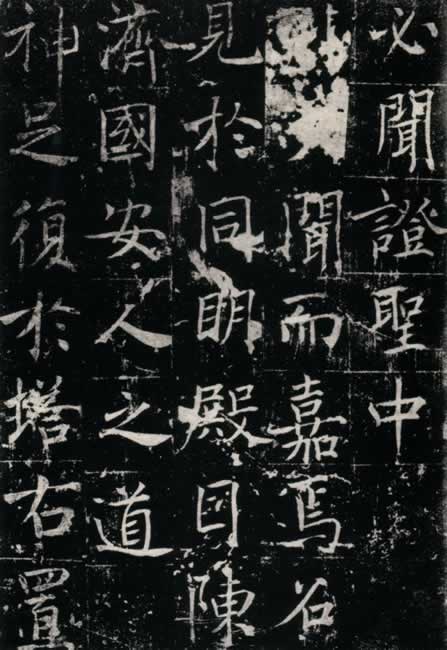 必聞證聖中
聞而嘉焉召
見於同明殿因陳
濟國安人之道
神足復於塔右置